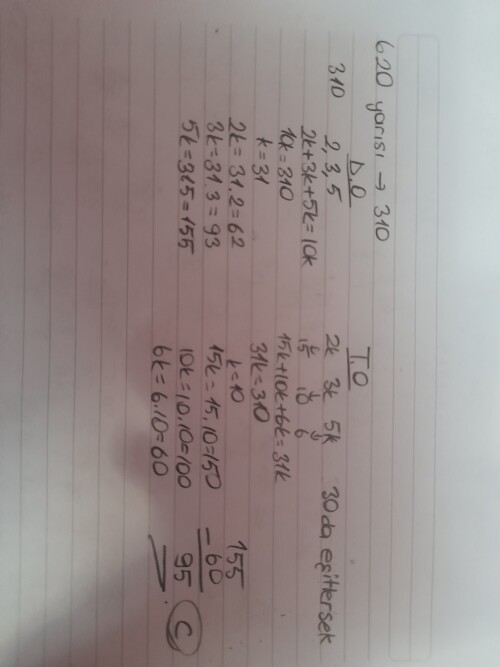 620 yarısı → 310
D.O
310 2, 3, 5
2k+3k+5k=10k
10k=310
k=31
2k=31.2=62
3k=31.3=93
5k=31.5=155
T.O
2k 3k 5k 30 da eşitlersek
15 10 6
15k+10k+6k=31k
31k=310
k=10
15k=15.10=150
10k=10.10=100
6k=6.10=60
155
- 60
95 C